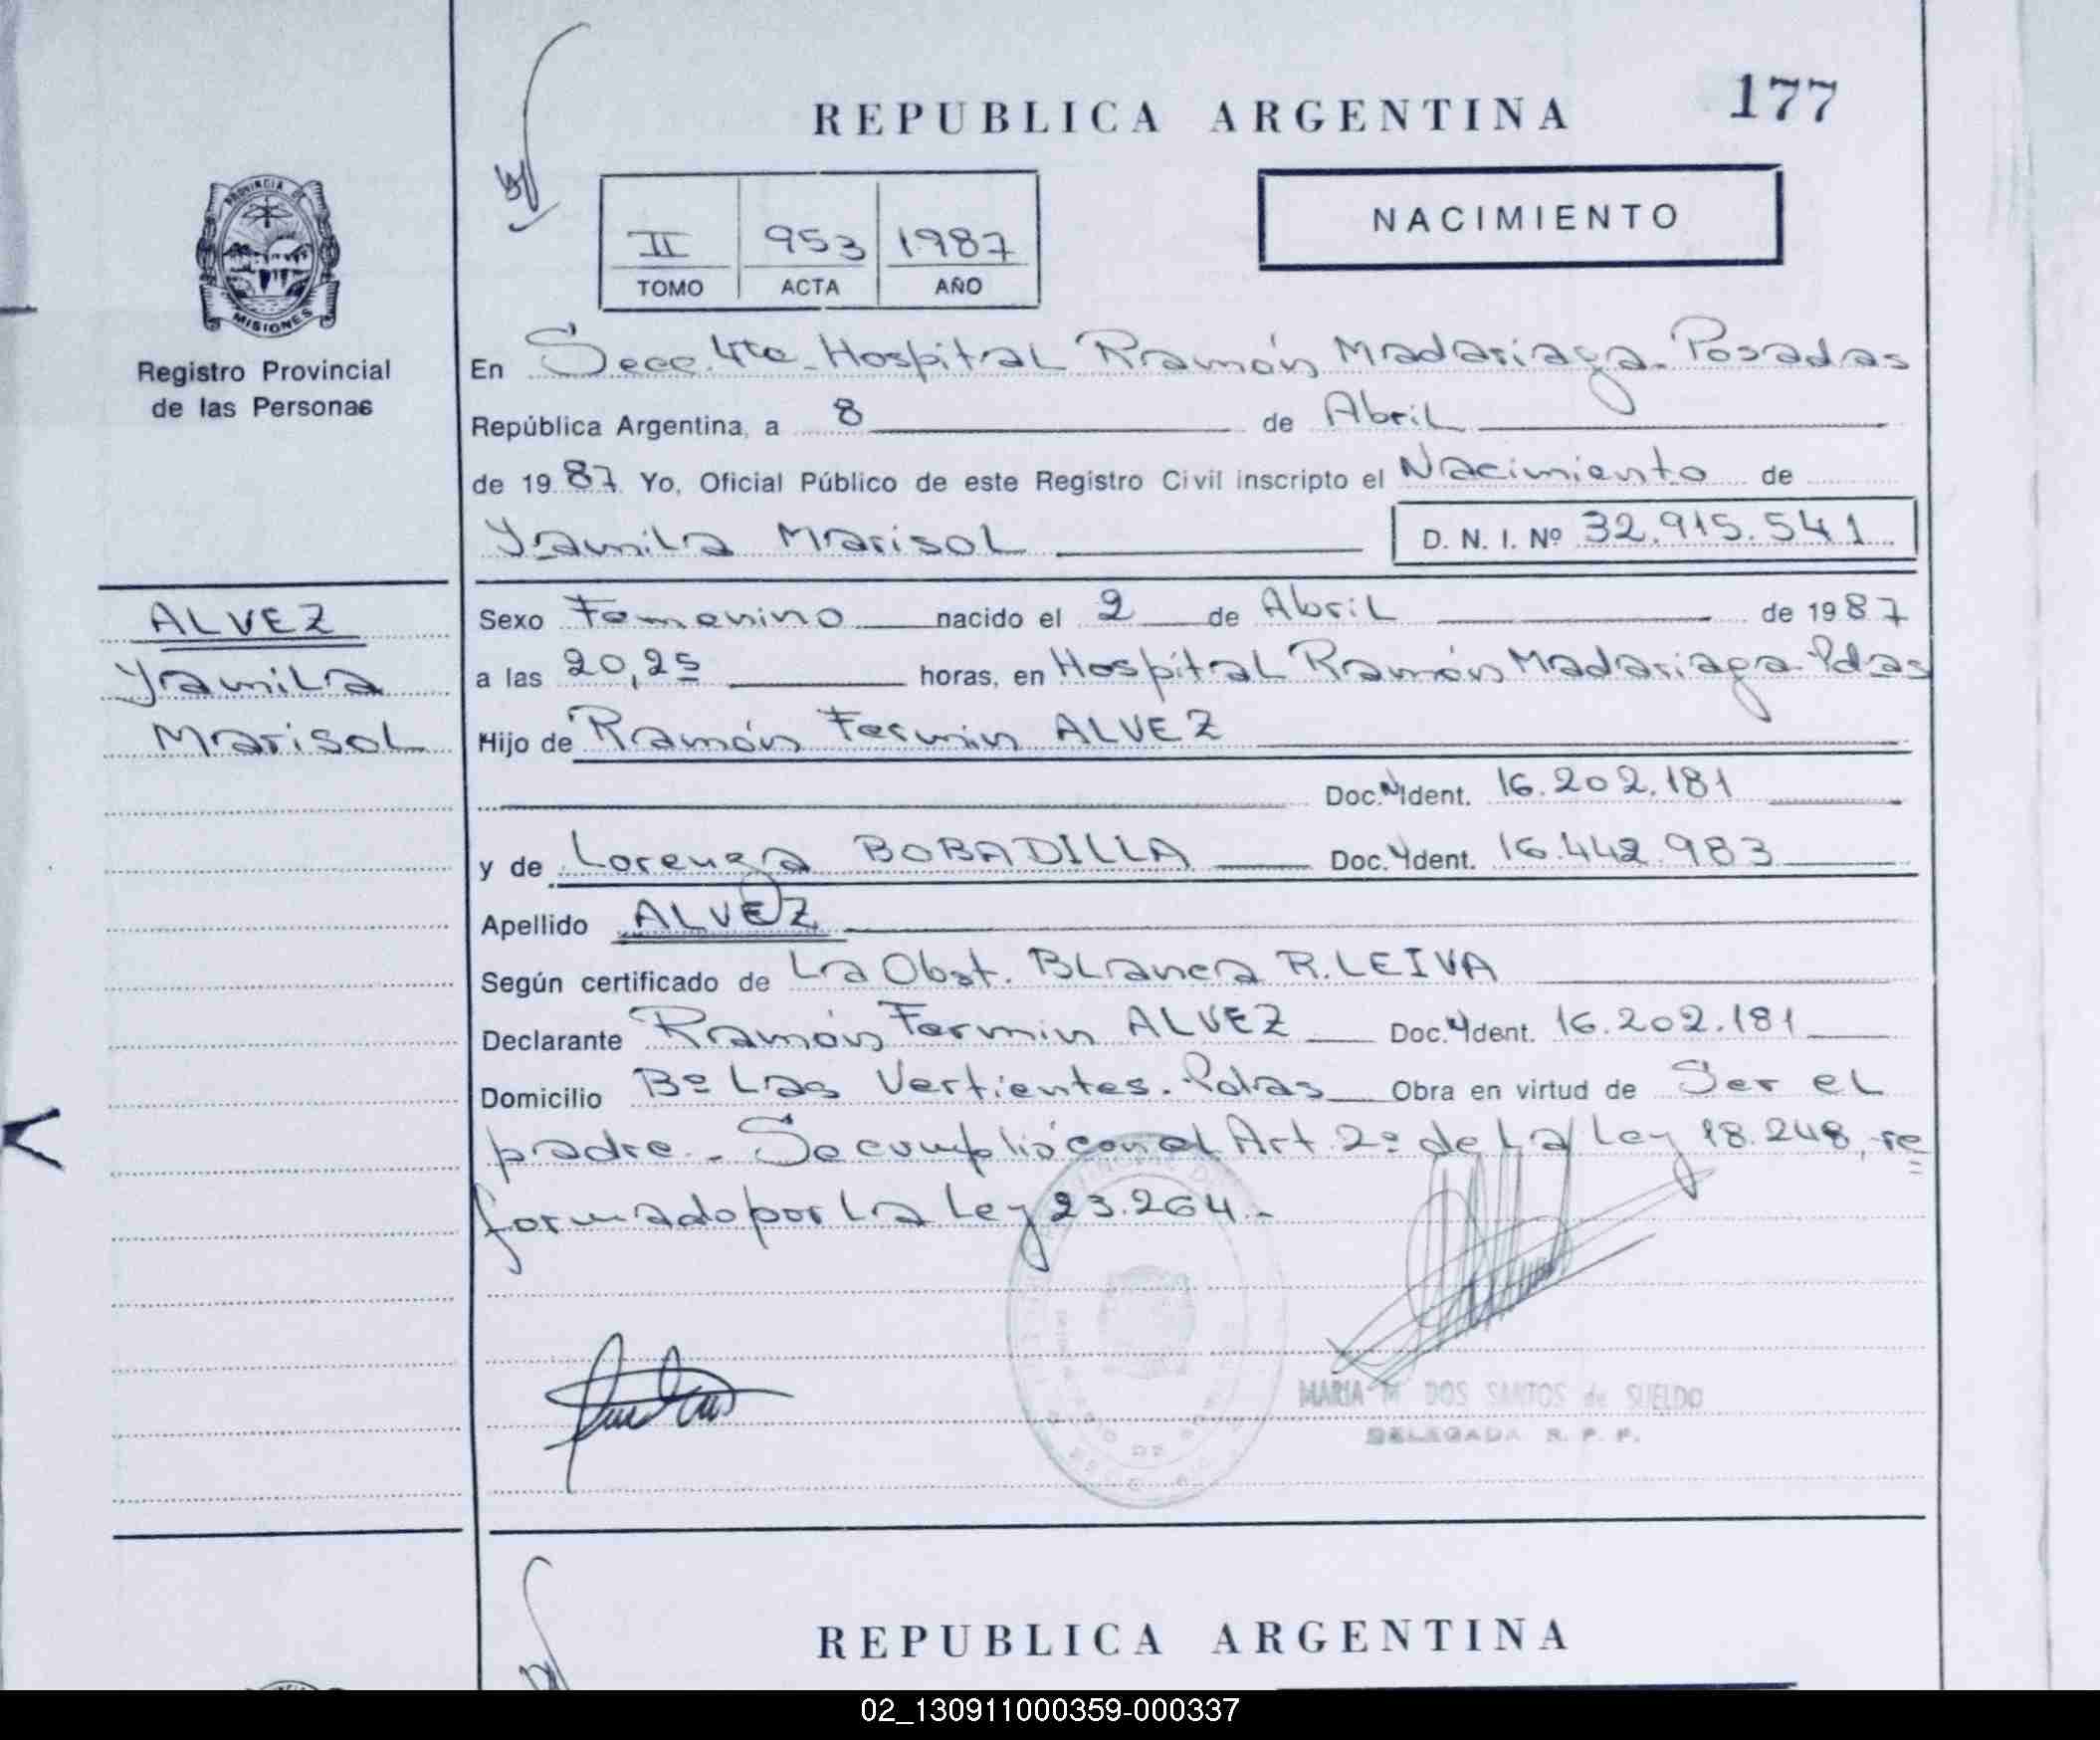 177
REPUBLICA ARGENTINA
PROVINCIA DE
MISIONES
Registro Provincial
de las Personas
II 953 1987
TOMO ACTA AÑO
NACIMIENTO
En Secc. 4ta. Hospital Ramón Madariaga. Posadas
República Argentina, a 8 de Abril
de 1987 Yo, Oficial Público de este Registro Civil inscripto el Nacimiento de
Yamila Marisol D. N. I. Nº 32.915.541
ALVEZ
Yamila
Marisol
Sexo Femenino nacido el 2 de Abril de 1987
a las 20,25 horas, en Hospital Ramón Madariaga Pdas
Hijo de Ramón Fermin ALVEZ
Doc. N Ident. 16.202.181
y de Lorenza BOBADILLA Doc. Ident. 16.442.983
Apellido ALVEZ
Según certificado de La Obst. Blanca R. LEIVA
Declarante Ramón Fermin ALVEZ Doc. Ident. 16.202.181
Domicilio Bº Las Vertientes. Pdas Obra en virtud de Ser el
padre. Se cumplió con el Art. 2º de La Ley 18.248, re
formado por La Ley 23.264.-
MARIA M DOS SANTOS de SUELDO
DELEGADA R. P. P.
REPUBLICA ARGENTINA
02_130911000359-000337